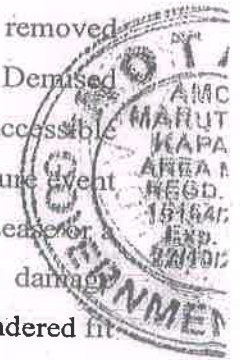 removed
Demised
accessible
ure event
ease or a
damage
ndered fit
OTA
AMO
MARUT
KAPA
AREA
REGD.
GOVERNMEN